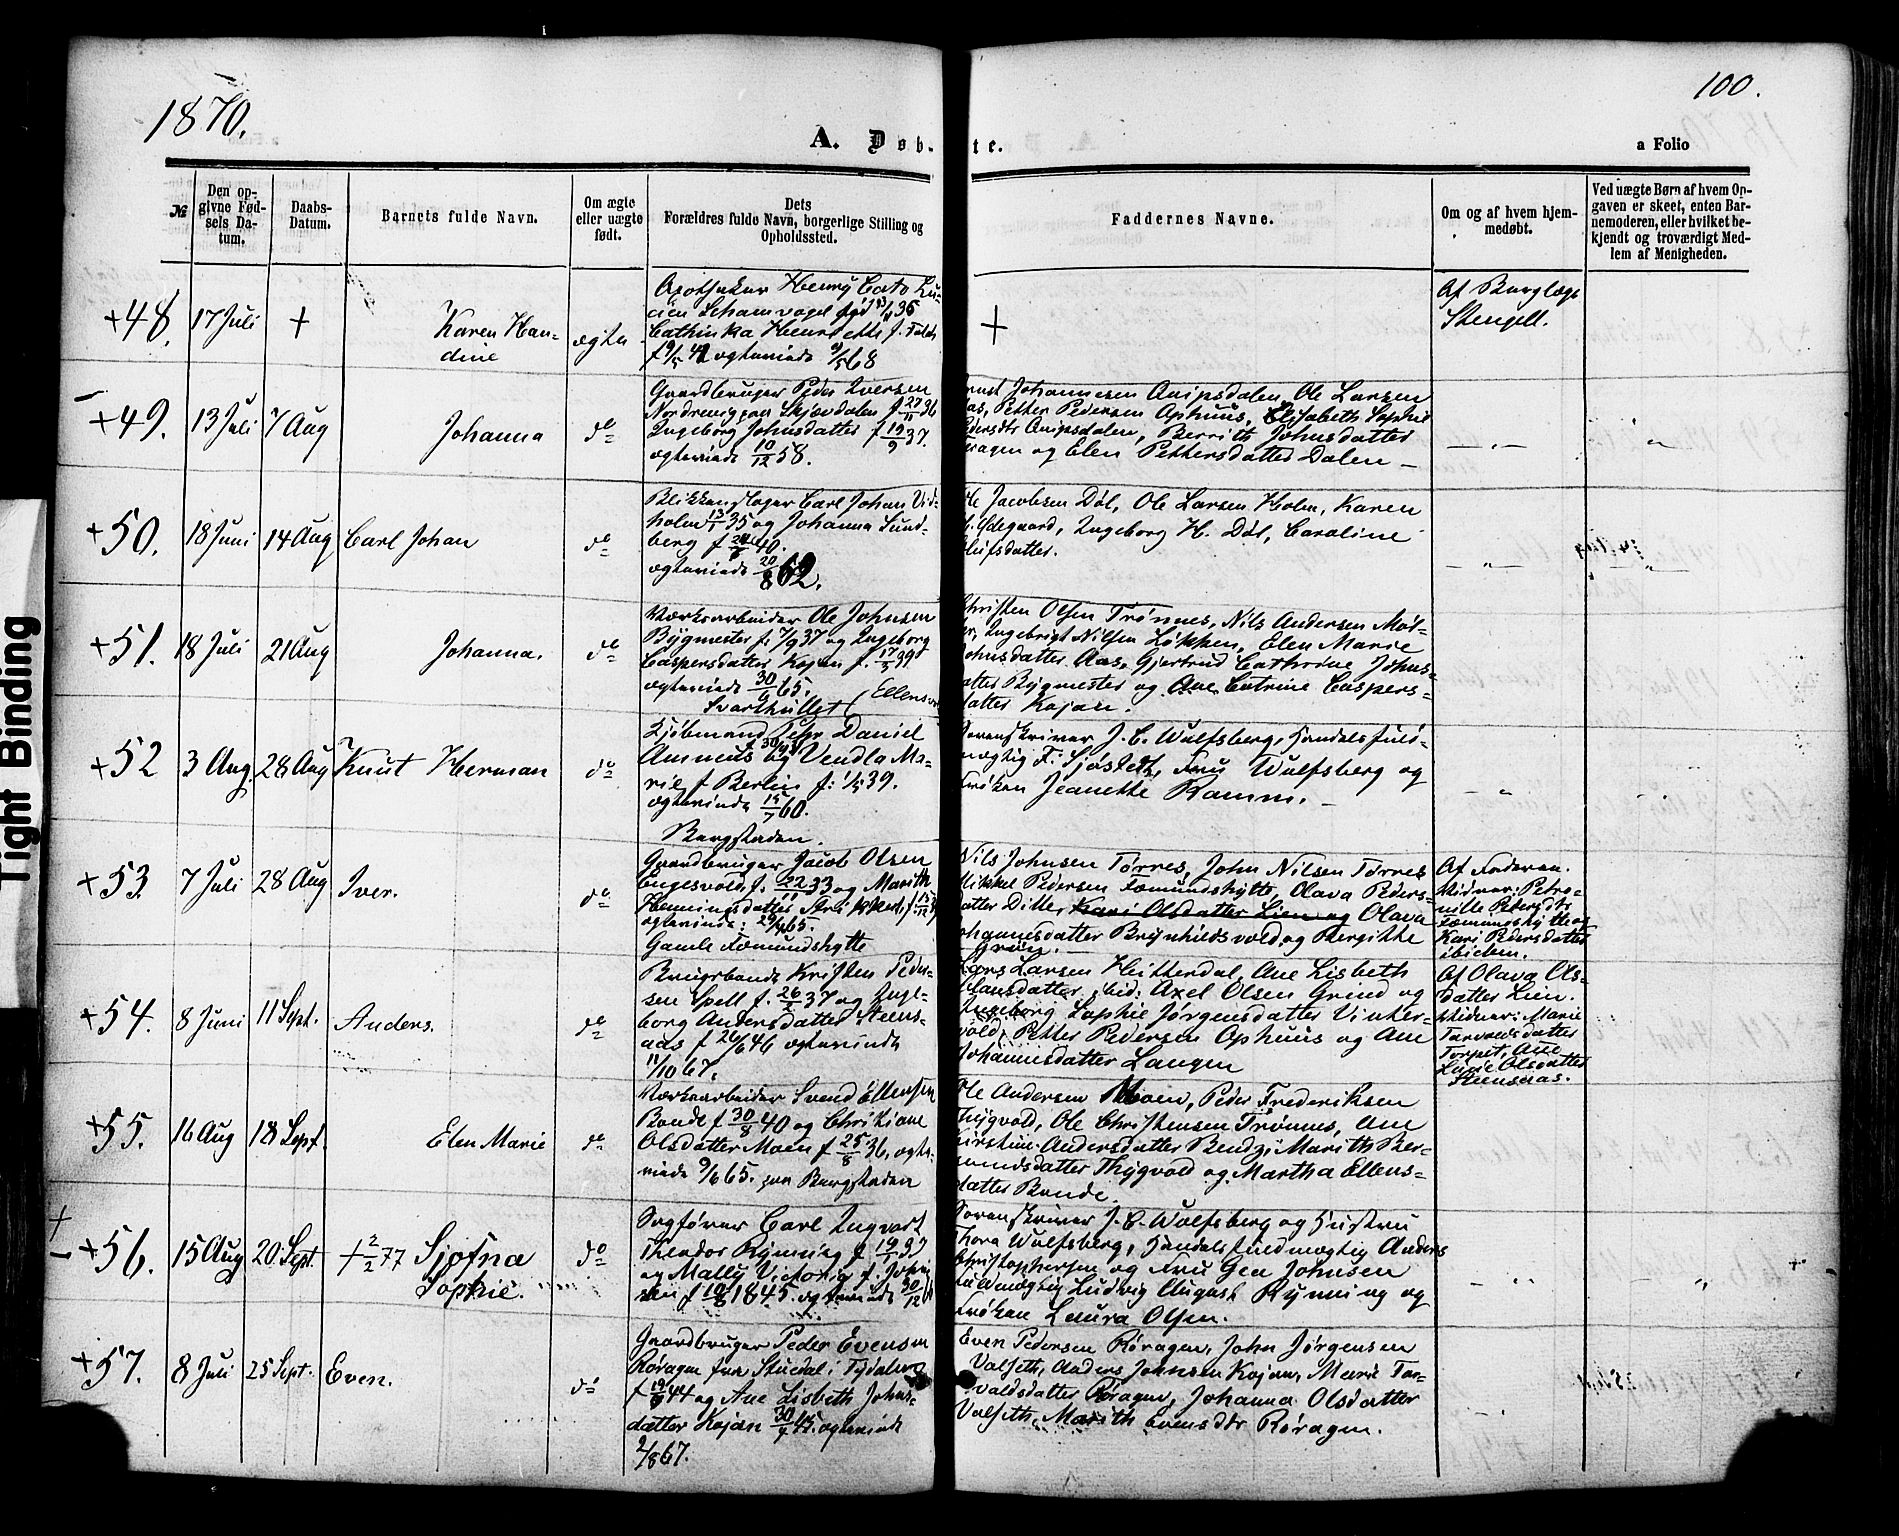 1870.
100.
A. Døb-
te.
a Folio
№
Den op-
givne Fød-
sels Da-
tum.
Daabs-
Datum.
Barnets fulde Navn.
Om ægte
eller uægte
født.
Dets
Forældres fulde Navn, borgerlige Stilling og
Opholdssted.
Faddernes Navne.
Om og af hvem hjem-
medøbt.
Ved uægte Børn af hvem Op-
gaven er skeet, enten Bar-
nemoderen, eller hvilket be-
kjendt og troværdigt Med-
lem af Menigheden.
+48. 17 Juli +
Karen Han-
dine
ægte
Apotheker Henry Cato Lu-
Cathinka Henriette f.
ægteviede 9/5 68
+
Af Berglæge
Stengell.
+49. 13 Juli 7 Aug
Johanna
do
Gaardbruger Peder Iversen
Nordrevig paa Skjævdalen f. 27/11 36
Ingeborg Johnsdatter f 19/9 37.
ægteviede 10/12 58.
Johannesen Aaipsdalen, Ole Larsen
Aas, Petter Pedersen Ophuus, Elisabeth Sophie
Aaipsdalen, Berrith Johnsdatter
og Elen Pettersdatter Dalen –
+50. 18 Juni 14 Aug Carl Johan
do
Blikkenslager Carl Johan Vid-
holm 13/1 35 og Johanna Lund-
berg f 40.
ægteviede 20/8 62.
Ole Jacobsen Døl, Ole Larsen Holm, Karen
Ødegaard, Ingeborg H. Døl, Caroline
+51. 18 Juli 21 Aug
Johanna.
do
Værksarbeider Ole Johnsen
Bygmester f: 7/9 37 og Ingeborg
Caspersdatter Kojan f. 17/5 39
ægteviede 30/6 65.
Svarthullet (Ellens
Christen Olsen Trønnes, Nils Andersen Møl-
ler, Ingebrigt Nilsen Løkken, Elen Marie
Johnsdatter Aas, Gjertrud Cathrine Johns-
datter Bygmester og Ane Catrine Caspers-
datter Kojan.
+52 3 Aug. 28 Aug Knut Herman
do
Kjøbmand Peter Daniel
Asmus og Vendla Ma-
rie f Berlin f: 1/5 39.
ægteviede 15/7 60.
Bergstaden.
Sorenskriver J. C. Wulfsberg, Handelsfuld-
mægtig F. Sjøstedt, Fru Wulfsberg og
Frøken Jeanette Ramm. –
+53. 7 Juli 28 Aug Iver.
do
Gaardbruger Jacob Olsen
Engesvold f. 22/11 33 og Marith
Henningsdatter
ægteviede: 29/4 65.
Gamle Fæmundshytte
Nils Johnsen Tørres, John Nilsen Tørres
Mikkel Pedersen Fæmundshytte, Olava Peders-
datter Ditto, Kari Olsdatter Lien og Olava
Johannesdatter Brynhildsvold og Bergitte
Grün.
Af Moderen.
Vidner: Petro-
nille Pedersdtr
Fæmundshytte og
Kari Pedersdatter
ibidem.
+54. 8 Juni 11 Sept. Anders.
do
Brugsbonde Kristen Peder-
sen Spell f. 26/2 37 og Inge-
borg Andersdatter Steens-
aas f 26/6 46 ægteviede
11/10 67.
Lars Larsen Hitterdal, Ane Lisbeth
Hansdatter ibid: Axel Olsen Grind og
Ingeborg Sophie Jørgensdatter Vinter-
vold, Petter Pedersen Ophuus og Ane
Johannesdatter Langen
Af Olava Ols-
datter Lien.
Vidner: Marie
Torvaldsdatter
Torpet, Ane
Lucie Olsdatter
Steensaas.
+55. 16 Aug 18 Sept.
Elen Marie
do
Værksarbeider Svend Ellensen
Bonde f 30/8 40 og Christiane
Olsdatter Moen f 25/8 36, ægte-
viede 9/6 65. paa Bergstaden
Ole Andersen Moen, Peder Frederiksen
Thygvold, Ole Christensen Trønnes, Ane
Kirstine Andersdatter Bendz, Marith Ber-
sundsdatter Thygvold og Martha Ellens-
datter Bonde.
+56. 15 Aug 20 Sept. + 2/2 77 Sjofna
Sophie.
do
Sagfører Carl Ingvart
Theodor Rynning f 19/1 37
og Mally Victoria f. John-
sen f 10/8 1845. ægteviede 30/12
Sorenskriver J. C. Wulfsberg og Hustru
Thora Wulfsberg, Handelsfuldmægtig Anders
Christophersen og Fru Gea Johnsen
Fuldmægtig Ludvig August Rynning og
Frøken Laura Olsen.
+57. 8 Juli 25 Sept. Even.
do
Gaardbruger Peder Evensen
Røragen fra Stuedal i Tydalen
f 19/8 44 og Ane Lisbeth Johns-
datter Kojan 30/9 45. ægteviede
2/8 67.
Even Pedersen Røragen, John Jørgensen
Valseth, Anders Johnsen Kojan, Marie Tor-
valdsdatter Røragen, Johanna Olsdatter
Valseth, Marith Evensdtr Røragen.
Tight Binding